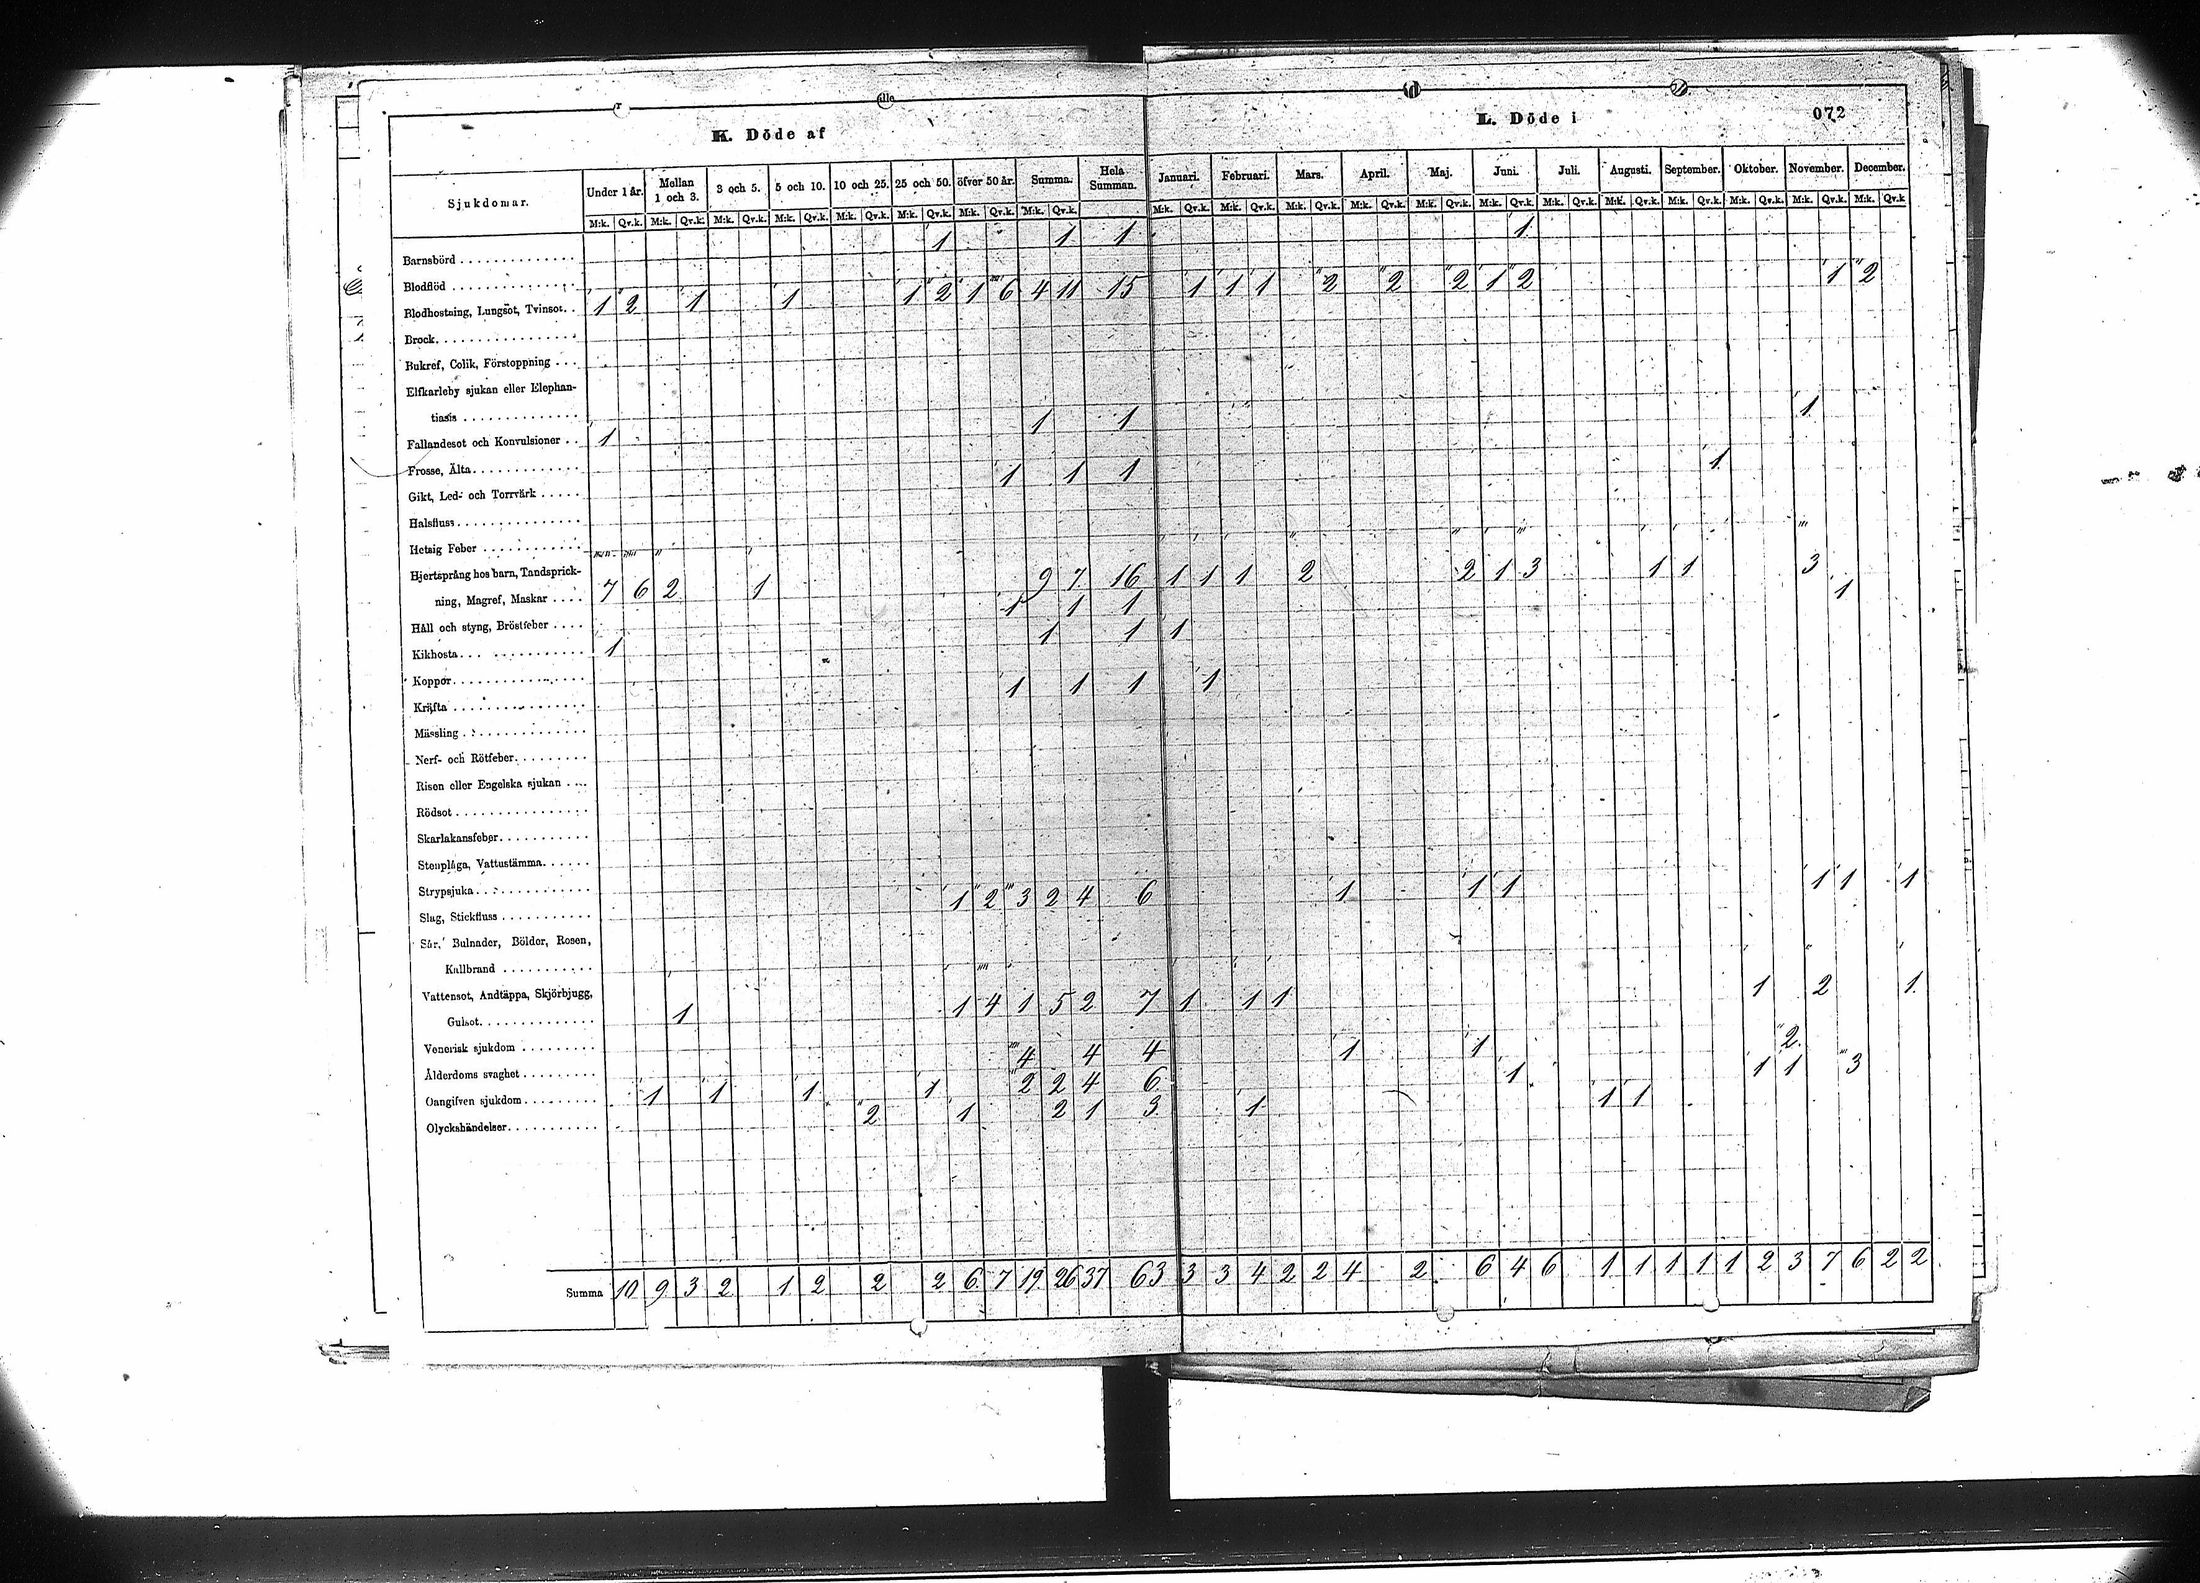 K. Döde af
L. Döde i
072
Sjukdomar.
Under 1 år. Mellan 1 och 3. 3 och 5. 5 och 10. 10 och 25. 25 och 50. öfver 50 år. Summa. Hela Summan. Januari. Februari. Mars. April. Maj. Juni. Juli. Augusti. September. Oktober. November. December.
M:k. Qv.k. M:k. Qv.k. M:k. Qv.k. M:k. Qv.k. M:k. Qv.k. M:k. Qv.k. M:k. Qv.k. M:k. Qv.k. M:k. Qv.k. M:k. Qv.k. M:k. Qv.k. M:k. Qv.k. M:k. Qv.k. M:k. Qv.k. M:k. Qv.k. M:k. Qv.k. M:k. Qv.k. M:k. Qv.k. M:k. Qv.k. M:k. Qv.k
Barnsbörd 1 1 1 1
Blodflöd
Blodhostning, Lungsot, Tvinsot. 1 2 1 1 1 2 1 6 4 11 15 1 1 1 2 2 2 1 2 1 2
Brock
Bukref, Colik, Förstoppning
Elfkarleby sjukan eller Elephan-
tiasis
Fallandesot och Konvulsioner 1 1 1 1
Frosse, Älta
Gikt, Led- och Torrvärk 1 1 1 1
Halsfluss
Hetsig Feber
Hjertsprång hos barn, Tandsprick-
ning, Magref, Maskar 7 6 2 1 9 7 16 1 1 1 2 2 1 3 1 1 3
Håll och styng, Bröstfeber 1 1 1 1
Kikhosta 1 1 1 1
Koppor
Kräfta 1 1 1 1
Mässling
Nerf- och Rötfeber
Risen eller Engelska sjukan
Rödsot
Skarlakansfeber
Stenplåga, Vattustämma
Strypsjuka
Slag, Stickfluss 1 2 3 2 4 6 1 1 1 1 1 1
Sår, Bulnader, Bölder, Rosen,
Kallbrand
Vattensot, Andtäppa, Skjörbjugg,
Gulsot 1 1 4 1 5 2 7 1 1 1 1 2 1
Venerisk sjukdom
Ålderdoms svaghet 4 4 4 1 1 2
Oangifven sjukdom 1 1 1 1 2 2 4 6 1 1 1 3
Olyckshändelser 2 1 2 1 3 1 1 1
Summa 10 9 3 2 1 2 2 2 6 7 19 26 37 63 3 3 4 2 2 4 2 6 4 6 1 1 1 1 1 2 3 7 6 2 2